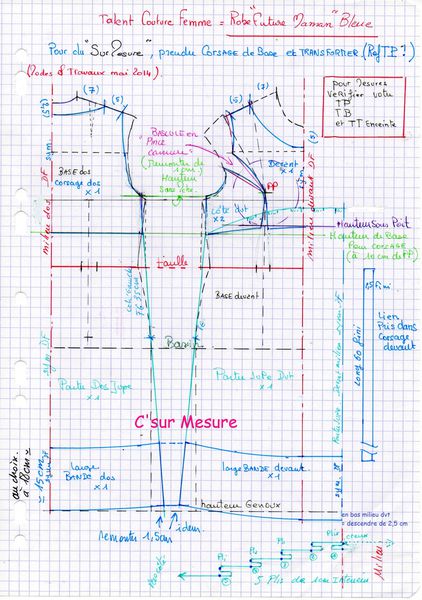 Talent Couture Femme = Robe "Future Maman" Bleue
Pour du "Sur Mesure", prendre CORSAGE de Base et TRANSFORMER (Ref TP?)
(Modes & Travaux mai 2014)
(7)
(5)
(6)
(7)
pour Mesures
Vérifier votre
TP
TB
et TT Enceinte
BASCULE en
Pince
Cambrure
(Remonter de
1cm)
Hauteur
Sous bras
sym
BASE DOS
corsage dos
x1
Devant
x1
PP
côté dvt
x2
milieu dos DF
milieu devant DF
Hauteur Sous Poit
Hauteur de Base
Pour CORSAGE
(à 10 cm de PP)
taille
BASE devant
Bassin
15 Fini
Lien
Pris dans
corsage
devant
Long 60 fini
Partie Dos Jupe
x1
Partie Jupe Dvt
x1
C"sur Mesure
au choix.
= 15 cm
à 18 cm
large
BANDE dos
x1
large BANDE devant.
x1
hauteur Genoux
remonter 1,5 cm
idem
en bas milieu dvt
= descendre de 2,5 cm
Milieu
5 Plis de 1 cm Intérieur